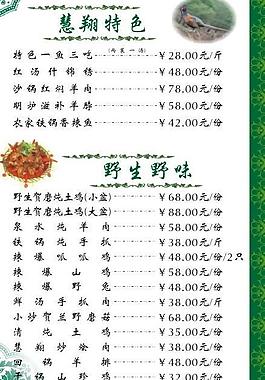 慧翔特色
(两煮一汤)
特色一鱼三吃 ￥28.00元/斤
红汤什锦锈 ￥48.00元/份
沙锅红焖羊肉 ￥58.00元/份
明炉滋补羊脖 ￥58.00元/份
农家铁锅香辣鱼 ￥42.00元/份
野生野味
野生贺磨炖土鸡(小盆) ￥68.00元/份
野生贺磨炖土鸡(大盆) ￥88.00元/份
泉水炖羊肉 ￥58.00元/份
铁锅炖手肉 ￥38.00元/份
辣爆呱呱鸡 ￥48.00元/份/2只
辣爆山鸡 ￥58.00元/份
辣爆野兔 ￥48.00元/份
鲜汤手抓肉 ￥38.00元/斤
小炒贺兰野磨菇 ￥68.00元/份
清炖土鸡 ￥35.00元/份
慧翔炒烩肉 ￥38.00元/份
回锅羊排 ￥48.00元/份
干锅山珍 ￥32.00元/份